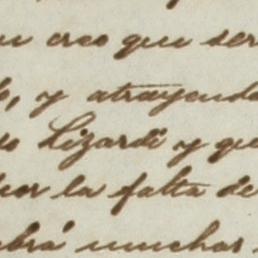 creo que ser
, y atrayendo
Lizardi y que
por la falta de
habrá muchos